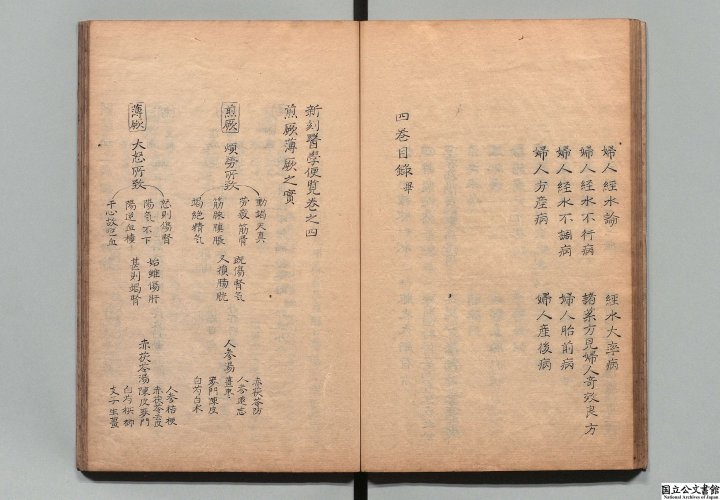 婦人經水論 經水大率病
婦人經水不行病 諸藥方見婦人奇效良方
婦人經水不調病 婦人胎前病
婦人方產病 婦人產後病
四卷目錄畢
新刻醫學便覽卷之四
煎厥薄厥之實
煎厥 煩勞所致
動竭天真
勞役筋骨
筋脉䐜脹
竭絕精氣
既傷腎氣
又損膀胱
人參湯
赤茯苓防
人參遠志
薑枣
麥門陳皮
白芍白朮
薄厥 大怒所致
怒則傷腎
陽氣不下
陽逆血積
于心故吐血
始雖傷肝
甚則竭腎
赤茯苓湯
人參桔梗
赤茯苓
陳皮麥門
白芍檳榔
生薑
国立公文書館
National Archives of Japan